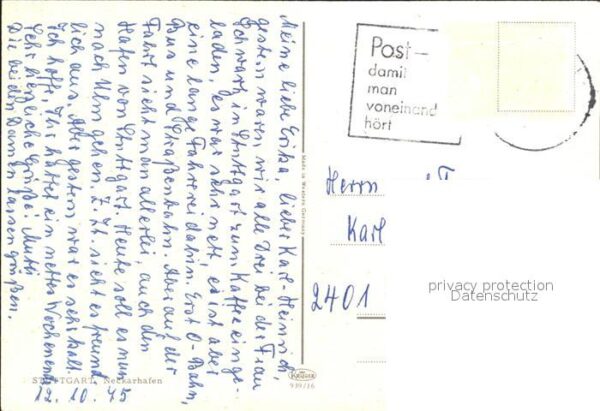 Meine liebe Erika, lieber Karl-Heinrich,
gestern waren wir alle drei bei der Frau
Schwarz in Stuttgart zum Kaffee einge-
laden. Es war sehr nett, es ist aber
eine lange Fahrerei dahin. Erst O-Bahn,
Bus und Straßenbahn. Aber auf der
Fahrt sieht man allerlei, auch den
Hafen von Stuttgart. Heute soll es nun
nach Ulm gehen. Z. Zt. sieht es freund
lich aus. Aber gestern war es sehr kalt.
Ich hoffe, Ihr hattet ein nettes Wochenend
Sehr herzliche Grüße! Mutti
Die beiden Damen lassen grüßen.
STUTTGART, Neckarhafen
12. 10. 75
Made in Western Germany
KRÜGER
939/26
Post –
damit
man
voneinand
hört
Herrn
Karl
2401
privacy protection
Datenschutz